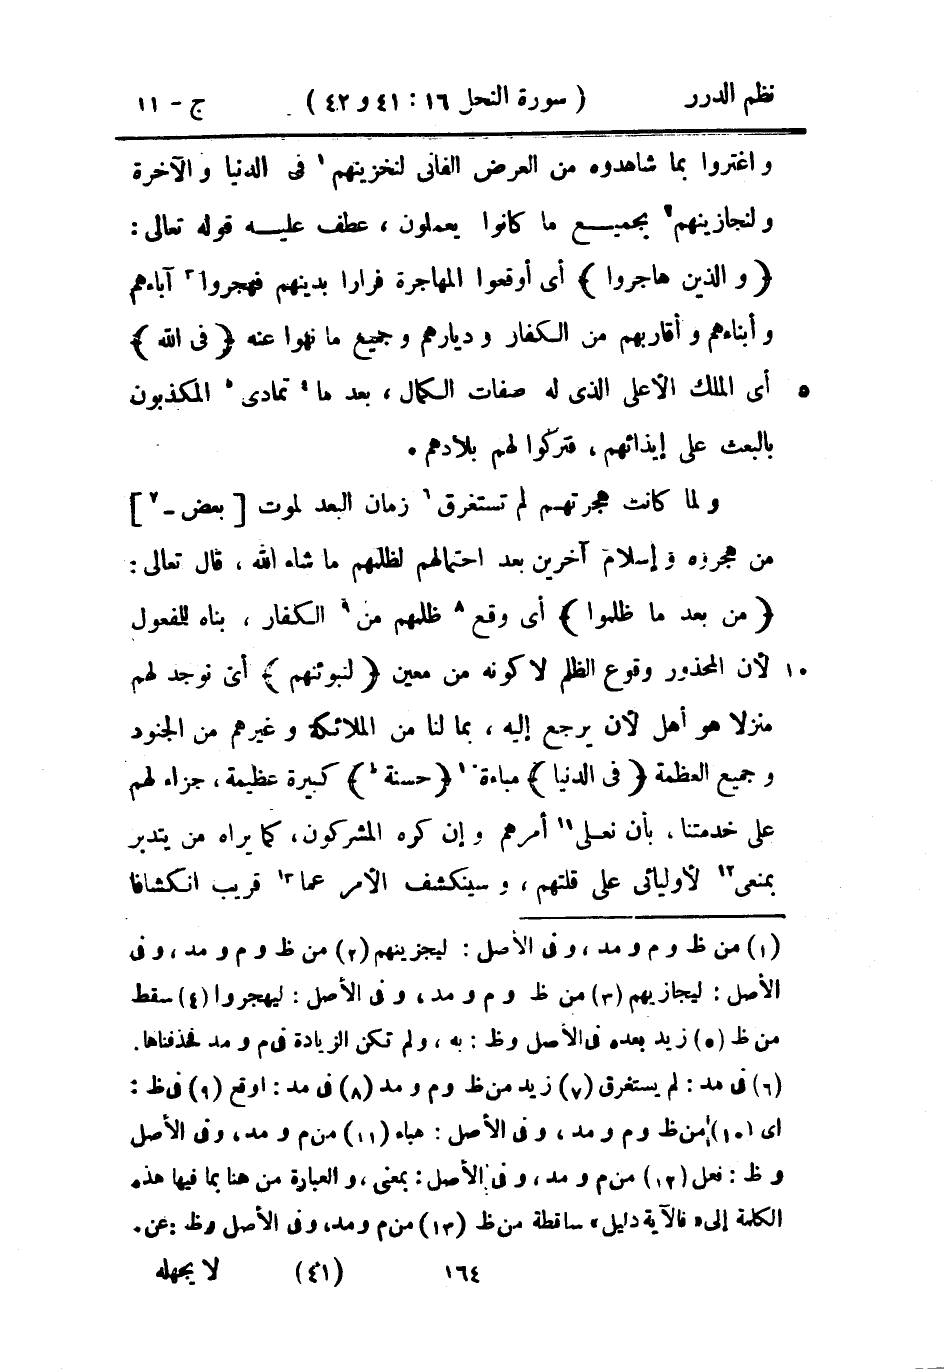 نظم الدرر ( سورة النحل ١٦ : ٤١ و ٤٢ ) ج - ١١
و اغتروا بما شاهدوه من العرض الفانى لنخزينهم ١ فى الدنيا و الآخرة
و لنجازينهم ٢ بجميع ما كانوا يعملون ، عطف عليه قوله تعالى :
﴿ و الذين هاجروا ﴾ أى أوقعوا المهاجرة فرارا بدينهم فهجروا ٣ آباءهم
و أبناءهم و أقاربهم من الكفار و ديارهم و جميع ما نهوا عنه ﴿ فى الله ﴾
٥ أى الملك الأعلى الذى له صفات الكمال ، بعد ما ٤ تمادى ٥ المكذبون
بالبعث على إيذائهم ، فتركوا لهم بلادهم .
و لما كانت هجرتهم لم تستغرق ٦ زمان البعد لموت [ بعض - ٧ ]
من هجروه و إسلام آخرين بعد احتمالهم لظلمهم ما شاء الله ، قال تعالى :
﴿ من بعد ما ظلموا ﴾ أى وقع ٨ ظلمهم من ٩ الكفار ، بناه للفعول
١٠ لأن المحذور وقوع الظلم لا كونه من معين ﴿ لنبوئنهم ﴾ أى نوجد لهم
منزلا هو أهل لأن يرجع إليه ، بما لنا من الملائكة و غيرهم من الجنود
و جميع العظمة ﴿ فى الدنيا ﴾ مباءة ١٠ ﴿ حسنة ط ﴾ كبيرة عظيمة ، جزاء لهم
على خدمتنا ، بأن نعلى ١١ أمرهم و إن كره المشركون ، كما يراه من يتدبر
بمنعى ١٢ لأوليائى على قلتهم ، و سينكشف الأمر عما ١٣ قريب انكشافا
(١) من ظ و م و مد ، و فى الأصل : ليجزينهم (٢) من ظ و م و مد ، و فى
الأصل : ليجازيهم (٣) من ظ و م و مد ، و فى الأصل : ليهجروا (٤) سقط
من ظ (٥) زيد بعده فى الأصل وظ : به ، ولم تكن الزيادة فى م و مد فحذفناها .
(٦) فى مد : لم يستغرق (٧) زيد من ظ و م و مد (٨) فى مد : اوقع (٩) فى ظ :
اى (١٠) من ظ و م و مد ، و فى الأصل : هباء (١١) من م و مد ، و فى الأصل
و ظ : نعل (١٢) من م و مد ، و فى الأصل : بمعنى ، و العبارة من هنا بما فيها هذه
الكلمة إلى « فالآية دليل » ساقطة من ظ (١٣) من م و مد ، و فى الأصل وظ : عن .
١٦٤ (٤١) لا يجهله